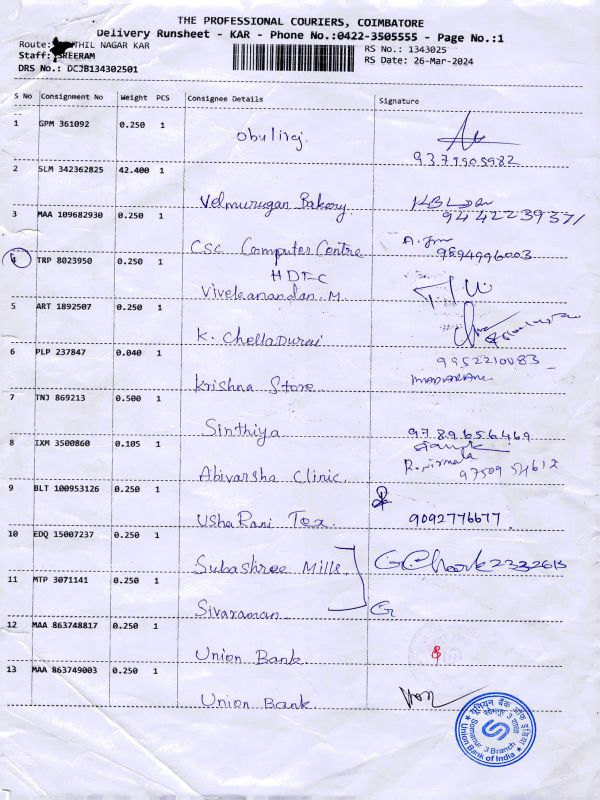 THE PROFESSIONAL COURIERS, COIMBATORE
Delivery Runsheet - KAR - Phone No.:0422-3505555 - Page No.:1
Route: NTHIL NAGAR KAR
RS No.: 1343025
Staff: SREERAM
RS Date: 26-Mar-2024
DRS No.: DCJB134302501
S No Consignment No Weight PCS Consignee Details Signature
1 GPM 361092 0.250 1
obuliraj.
9379905982
2 SLM 342362825 42.400 1
Velmurugan Bakery.
9442223937/
3 MAA 109682930 0.250 1
CSC Computer Centre
9894996003
4 TRP 8023950 0.250 1
HDFC
Vivekanandan. M.
5 ART 1892507 0.250 1
K. Chelladurai
9952210083
6 PLP 237847 0.040 1
Krishna Store
7 TNJ 869213 0.500 1
Sinthiya
9789656469
8 IXM 3500860 0.105 1
R. Nirmala
Abivarsha Clinic.
97509 54612
9 BLT 100953126 0.250 1
Usha Rani Tex.
9092776677.
10 EDQ 15007237 0.250 1
Subashree Mills.
11 MTP 3071141 0.250 1
Sivaraman
12 MAA 863748817 0.250 1
Union Bank.
13 MAA 863749003 0.250 1
Union Bank.
यूनियन बैंक ऑफ इंडिया
सोमनूर 3 शाखा
Somanur 3 Branch
Union Bank of India